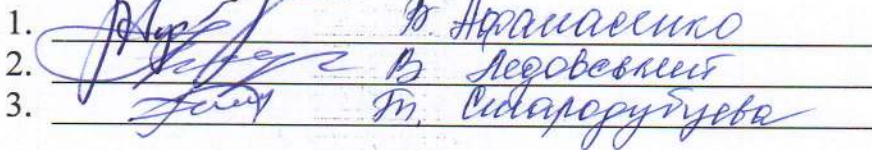 1. В. Афанасенко
2. В Ледовський
3. Т. Стародубцева